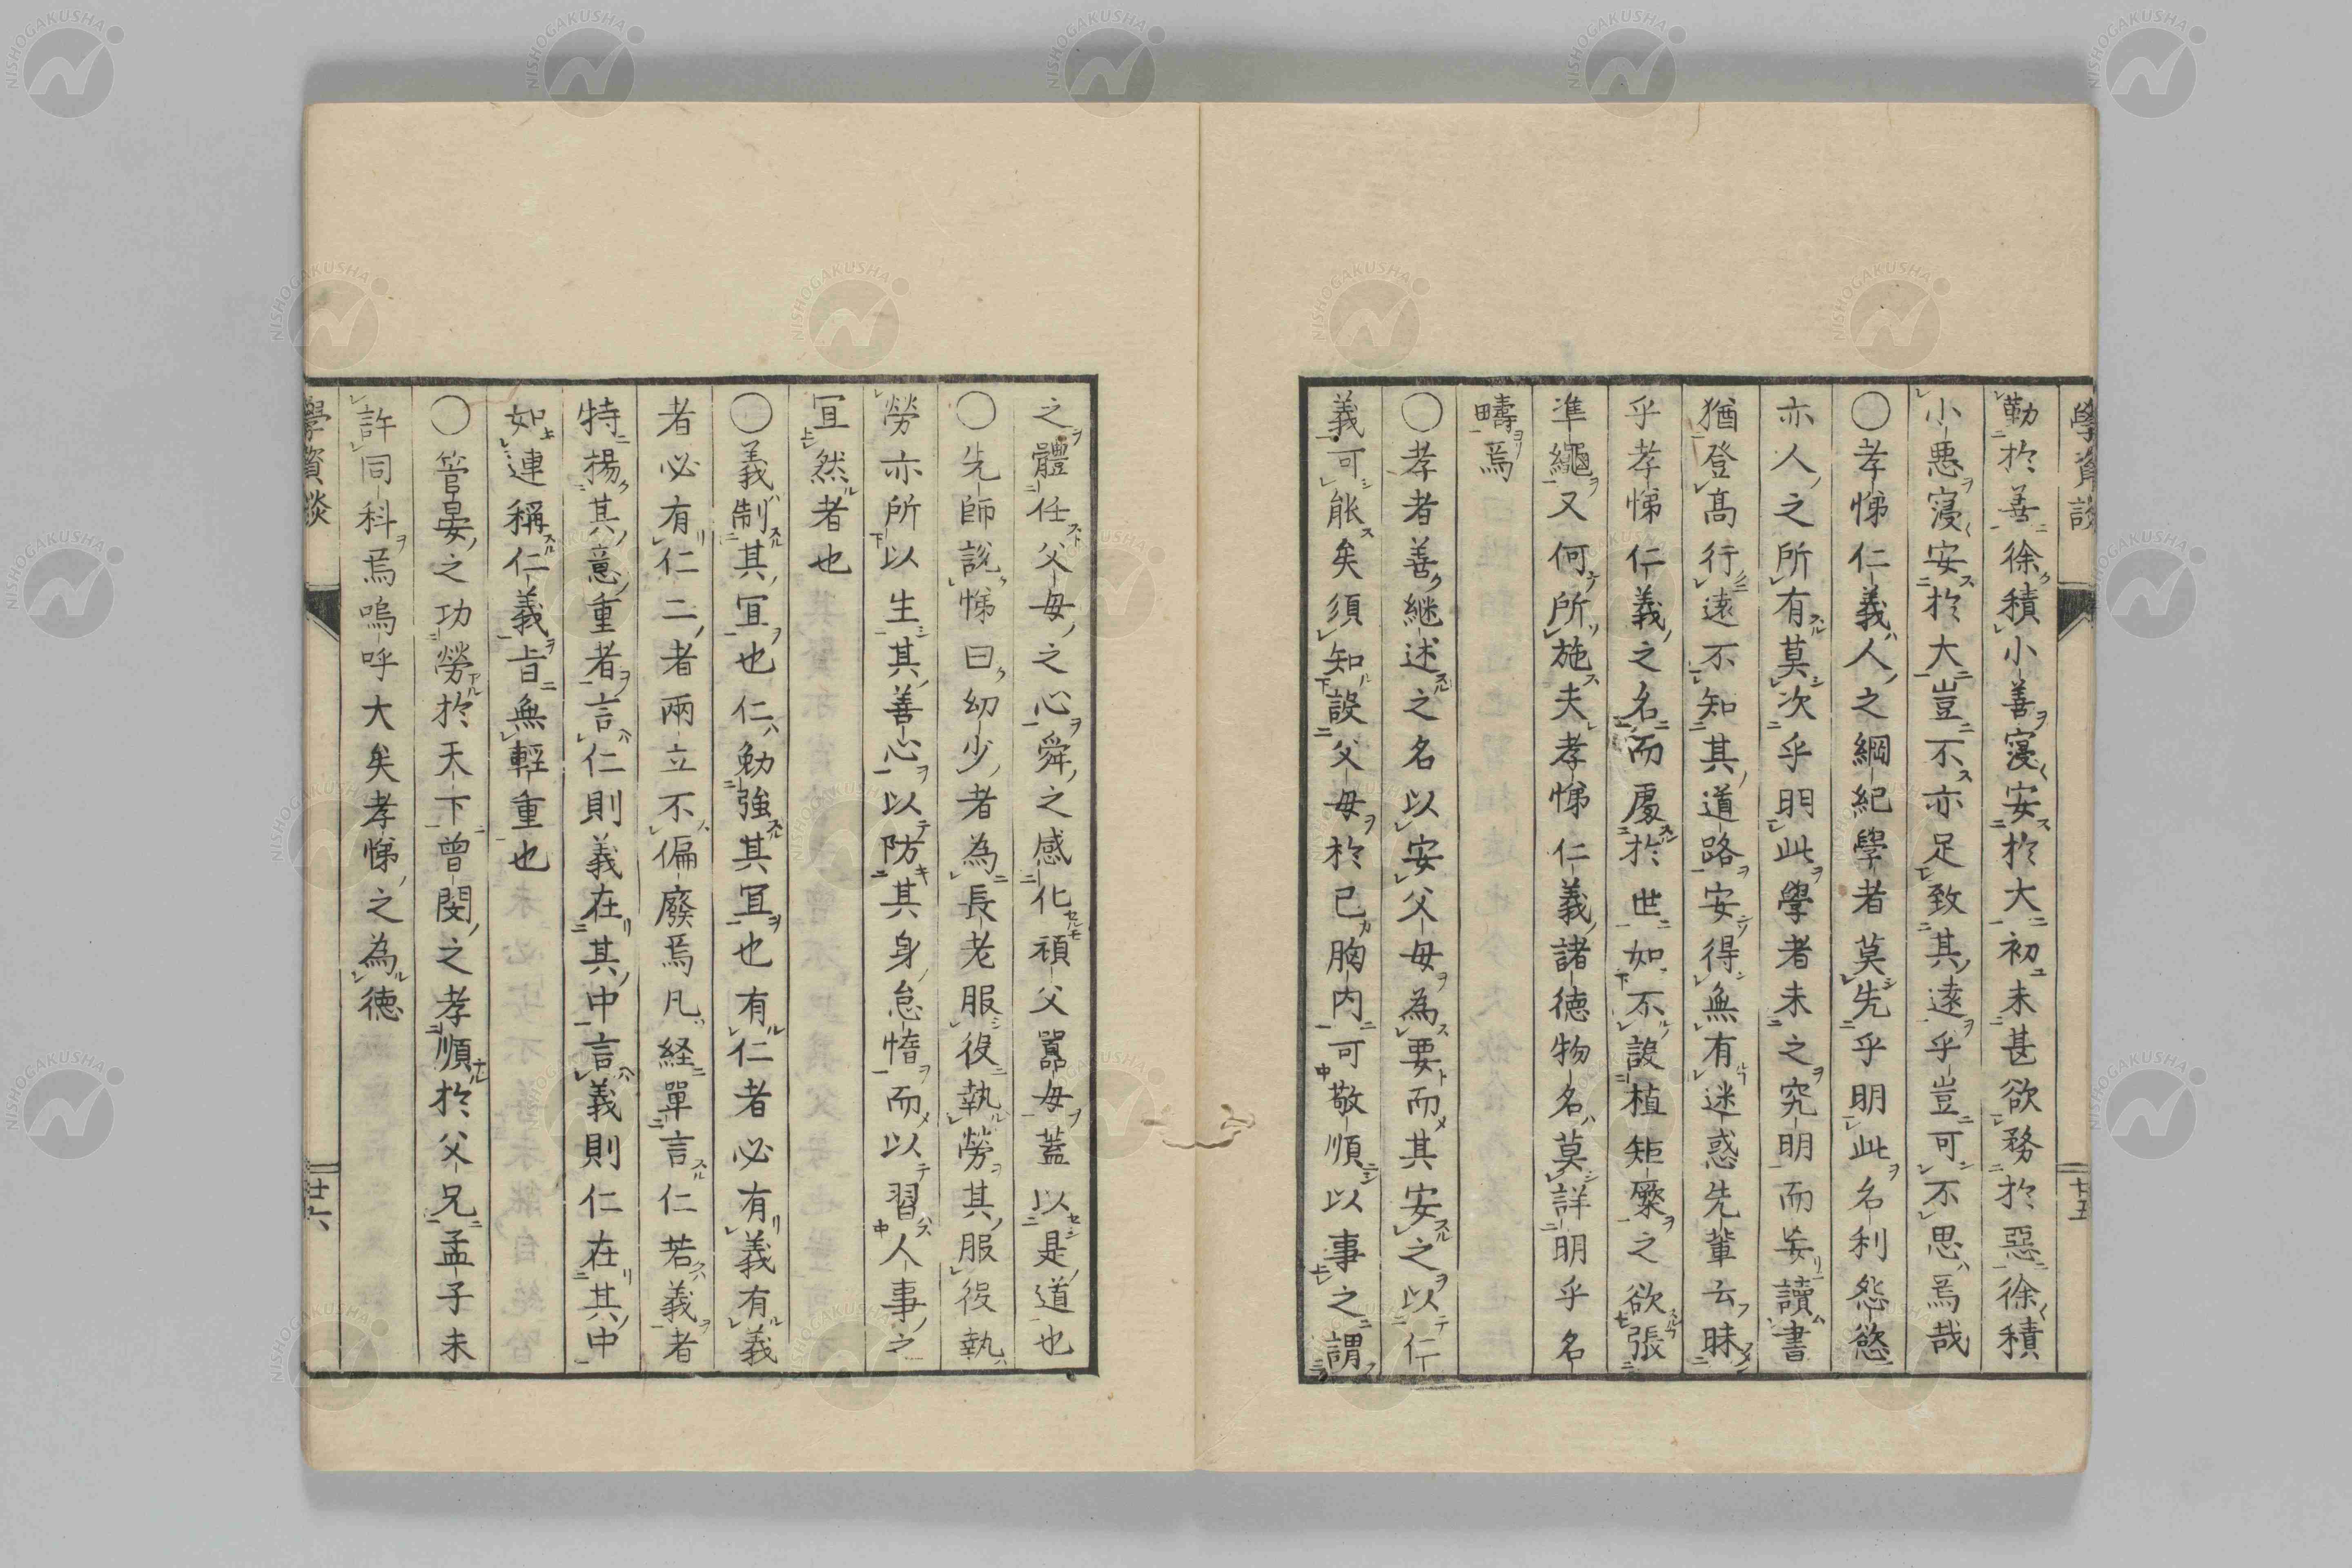 學資談
勤於善徐積小善寖安於大初未甚欲務於惡徐積
小惡寖安於大豈不亦足致其遠乎豈可不思焉哉
〇孝悌仁義人之綱紀學者莫先乎明此名利怨慾
亦人之所有莫次乎明此學者未之究明而妄讀書
猶登高行遠不知其道路安得無有迷惑先輩云昧
乎孝悌仁義之名而處於世如不設植矩槩之欲張
準繩又何所施夫孝悌仁義諸德物名莫詳明乎名
疇焉
〇孝者善継述之名以安父母為要而其安之以仁
義可能矣須知設父母於已胸内可敬順以事之謂
七五
之體任父母之心舜之感化頑父嚚母蓋以是道也
〇先師說悌曰幼少者為長老服役執勞其服役執
勞亦所以生其善心以防其身怠惰而以習人事之
冝然者也
〇義制其冝也仁勉強其冝也有仁者必有義有義
者必有仁二者兩立不偏廢焉凡経單言仁若義者
特揚其意重者言仁則義在其中言義則仁在其中
如連稱仁義旨無輕重也
〇管晏之功勞於天下曾閔之孝順於父兄孟子未
許同科焉嗚呼大矣孝悌之為德
學資談
七六